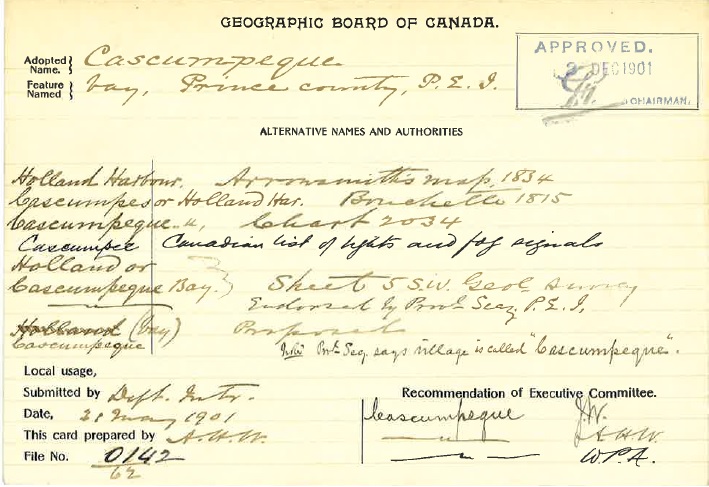 GEOGRAPHIC BOARD OF CANADA.
Adopted Name. } Cascumpeque
Feature Named } bay, Prince county, P.E.I.
APPROVED.
2 DEC 1901
CHAIRMAN.
ALTERNATIVE NAMES AND AUTHORITIES
Holland Harbour. Arrowsmith's map, 1834
Cascumpes or Holland Har. Bouchette 1815
Cascumpeque " Chart 2034
Cascumpec Canadian list of lights and fog signals
Holland or
Cascumpeque Bay. } Sheet 5 S.W. Geol. Survey
Endorsed by Provl. Secy. P.E.I.
Holland (bay) Proposed
Cascumpeque
Note Pr. Secy. says village is called "Cascumpeque".
Local usage,
Submitted by Dept. Intr.
Date, 21 May 1901
This card prepared by A.H.W.
File No. 0142
62
Recommendation of Executive Committee.
Cascumpeque J.W.
" A.H.W.
" W.P.A.